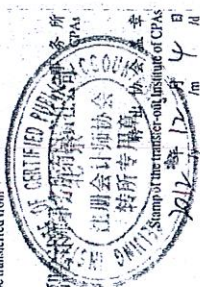 be transferred from
务所
CPAs
INSTITUTE OF CERTIFIED PUBLIC ACCOUN
注册会计师协会
转所专用章
协会盖章
Stamp of the transfer-out Institute of CPAs
2012年12月4日
/m /d